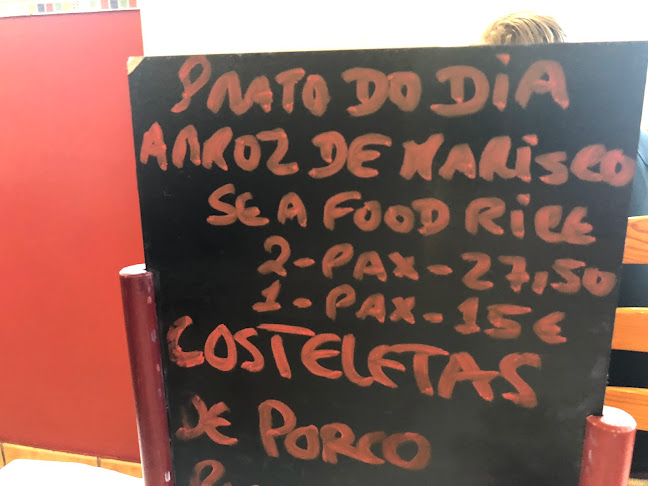 PRATO DO DIA
ARROZ DE MARISCO
SEAFOOD RICE
2-PAX-27,50
1-PAX-15€
COSTELETAS
DE PORCO